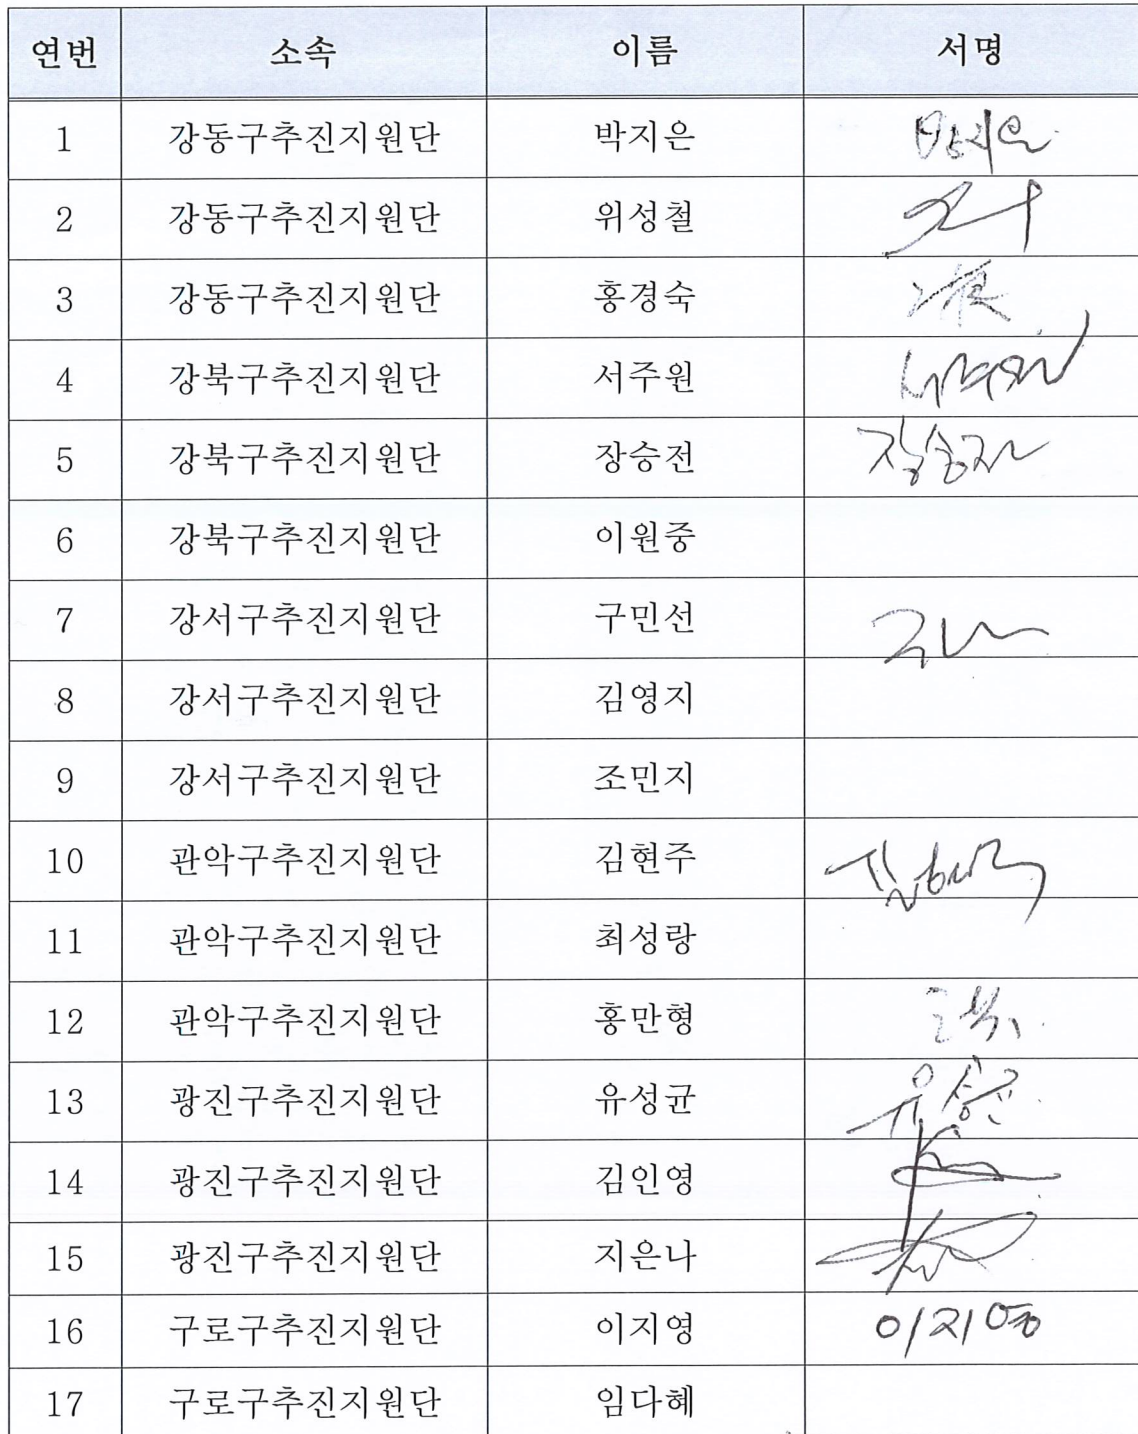 연번 소속 이름 서명
1 강동구추진지원단 박지은 박지은
2 강동구추진지원단 위성철
3 강동구추진지원단 홍경숙
4 강북구추진지원단 서주원 서주원
5 강북구추진지원단 장승전 장승전
6 강북구추진지원단 이원중
7 강서구추진지원단 구민선
8 강서구추진지원단 김영지
9 강서구추진지원단 조민지
10 관악구추진지원단 김현주 김현주
11 관악구추진지원단 최성랑
12 관악구추진지원단 홍만형
13 광진구추진지원단 유성균 유성균
14 광진구추진지원단 김인영
15 광진구추진지원단 지은나
16 구로구추진지원단 이지영 이지영
17 구로구추진지원단 임다혜